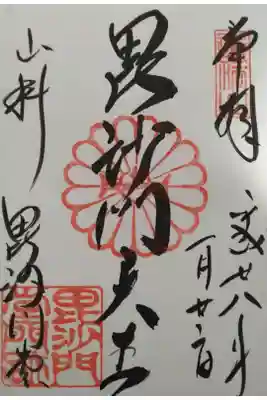 奉拝
平成廿八年
一月廿二日
毘沙門天王
山科
毘沙門堂
毘沙門